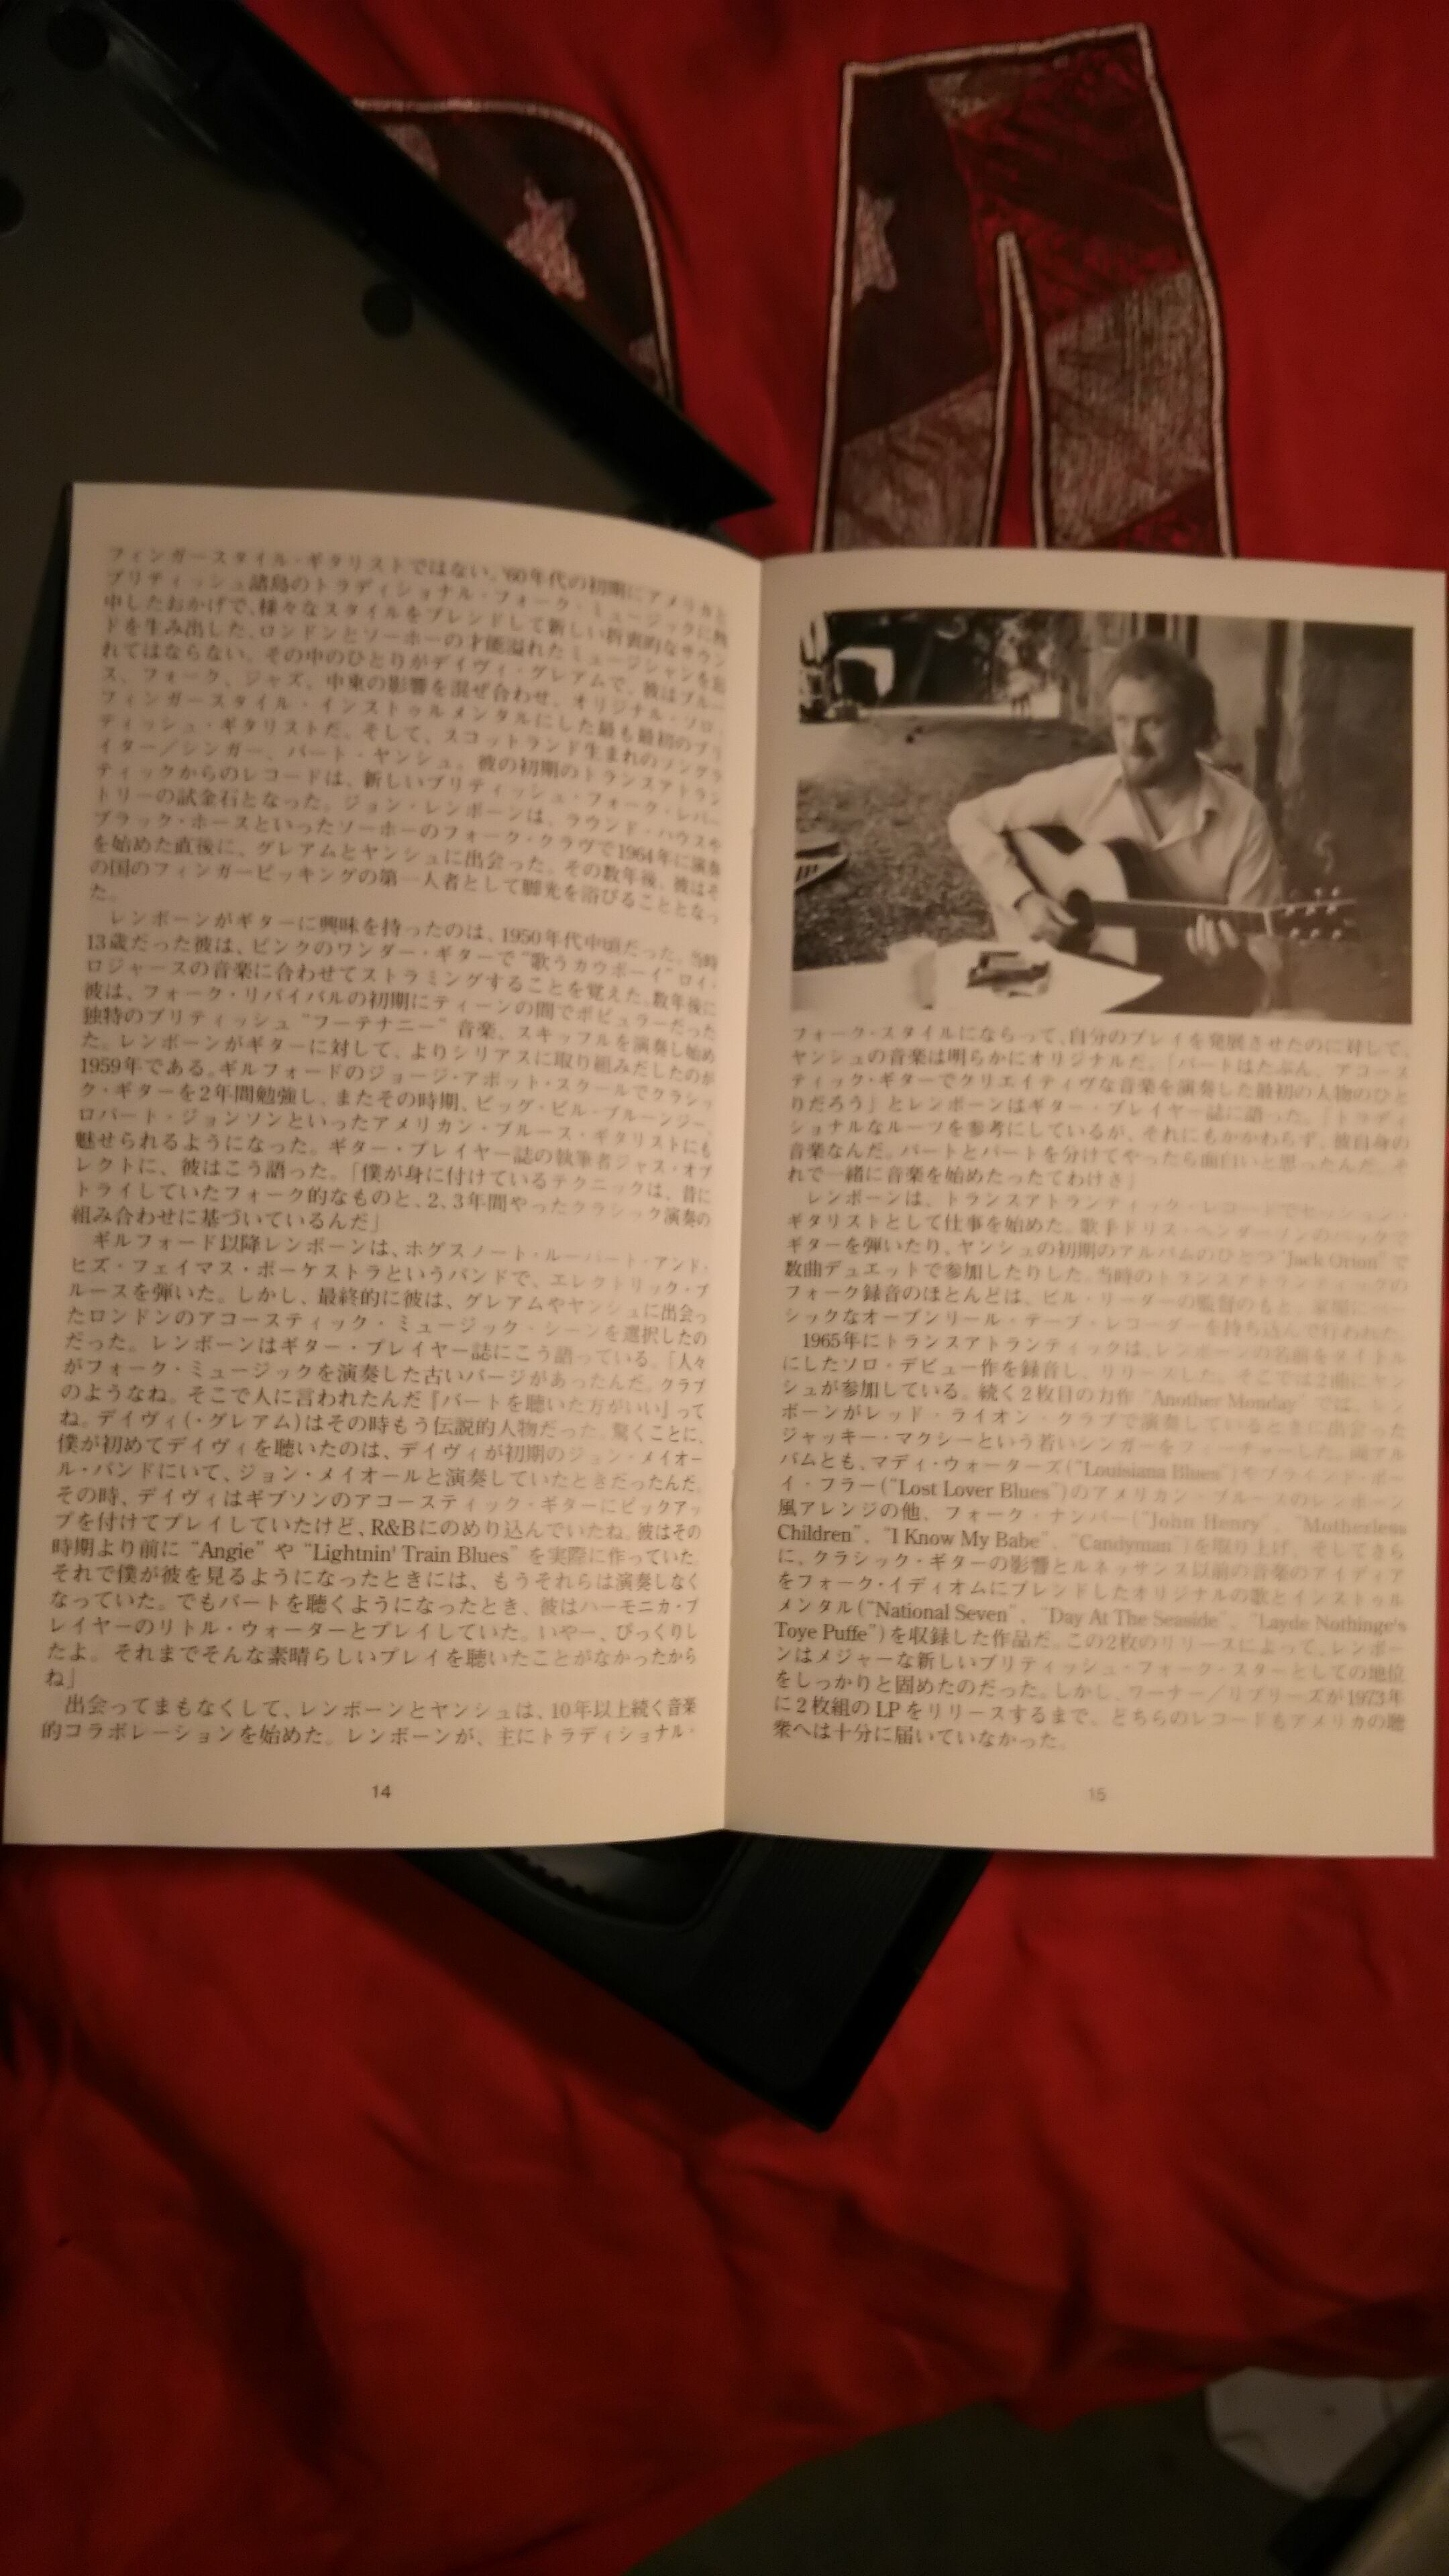 フィンガースタイル・ギタリストではない。'60年代の初期にアメリカと
ブリティッシュ諸島のトラディショナル・フォーク・ミュージックに熱
中したおかげで、様々なスタイルをブレンドして新しい折衷的なサウン
ドを生み出した、ロンドンとソーホーの才能溢れたミュージシャンを忘
れてはならない。その中のひとりがデイヴィ・グレアムで、彼はブルー
ス、フォーク、ジャズ、中東の影響を混ぜ合わせ、オリジナル・ソロ・
フィンガースタイル・インストゥルメンタルにした最も最初のブリ
ティッシュ・ギタリストだ。そして、スコットランド生まれのソングラ
イター／シンガー、バート・ヤンシュ。彼の初期のトランスアトラン
ティックからのレコードは、新しいブリティッシュ・フォーク・レパー
トリーの試金石となった。ジョン・レンボーンは、ラウンド・ハウスや
ブラック・ホースといったソーホーのフォーク・クラヴで1964年に演奏
を始めた直後に、グレアムとヤンシュに出会った。その数年後、彼はそ
の国のフィンガーピッキングの第一人者として脚光を浴びることとなっ
た。
レンボーンがギターに興味を持ったのは、1950年代中頃だった。当時
13歳だった彼は、ピンクのワンダー・ギターで“歌うカウボーイ”ロイ・
ロジャースの音楽に合わせてストラミングすることを覚えた。数年後に
彼は、フォーク・リバイバルの初期にティーンの間でポピュラーだった
独特のブリティッシュ“フーテナニー”音楽、スキッフルを演奏し始め
た。レンボーンがギターに対して、よりシリアスに取り組みだしたのが
1959年である。ギルフォードのジョージ・アボット・スクールでクラシッ
ク・ギターを2年間勉強し、またその時期、ビッグ・ビル・ブルーンジー、
ロバート・ジョンソンといったアメリカン・ブルース・ギタリストにも
魅せられるようになった。ギター・プレイヤー誌の執筆者ジャス・オブ
レクトに、彼はこう語った。「僕が身に付けているテクニックは、昔に
トライしていたフォーク的なものと、2、3年間やったクラシック演奏の
組み合わせに基づいているんだ」
ギルフォード以降レンボーンは、ホグスノート・ルーパート・アンド・
ヒズ・フェイマス・ポーケストラというバンドで、エレクトリック・ブ
ルースを弾いた。しかし、最終的に彼は、グレアムやヤンシュに出会っ
たロンドンのアコースティック・ミュージック・シーンを選択したの
だった。レンボーンはギター・プレイヤー誌にこう語っている。「人々
がフォーク・ミュージックを演奏した古いバージがあったんだ。クラブ
のようなね。そこで人に言われたんだ『バートを聴いた方がいい』って
ね。デイヴィ(・グレアム)はその時もう伝説的人物だった。驚くことに、
僕が初めてデイヴィを聴いたのは、デイヴィが初期のジョン・メイオー
ル・バンドにいて、ジョン・メイオールと演奏していたときだったんだ。
その時、デイヴィはギブソンのアコースティック・ギターにピックアッ
プを付けてプレイしていたけど、R&Bにのめり込んでいたね。彼はその
時期より前に “Angie” や “Lightnin' Train Blues” を実際に作っていた。
それで僕が彼を見るようになったときには、もうそれらは演奏しなく
なっていた。でもバートを聴くようになったとき、彼はハーモニカ・プ
レイヤーのリトル・ウォーターとプレイしていた。いやー、びっくりし
たよ。それまでそんな素晴らしいプレイを聴いたことがなかったから
ね」
出会ってまもなくして、レンボーンとヤンシュは、10年以上続く音楽
的コラボレーションを始めた。レンボーンが、主にトラディショナル・
14
フォーク・スタイルにならって、自分のプレイを発展させたのに対して、
ヤンシュの音楽は明らかにオリジナルだ。「バートはたぶん、アコース
ティック・ギターでクリエイティヴな音楽を演奏した最初の人物のひと
りだろう」とレンボーンはギター・プレイヤー誌に語った。「トラディ
ショナルなルーツを参考にしているが、それにもかかわらず、彼自身の
音楽なんだ。パートとパートを分けてやったら面白いと思ったんだ。そ
れで一緒に音楽を始めたったてわけさ」
レンボーンは、トランスアトランティック・レコードでセッション・
ギタリストとして仕事を始めた。歌手ドリス・ヘンダーソンのバックで
ギターを弾いたり、ヤンシュの初期のアルバムのひとつ “Jack Orion” で
数曲デュエットで参加したりした。当時のトランスアトランティックの
フォーク録音のほとんどは、ビル・リーダーの監督のもと、
シックなオープンリール・テープ・レコーダーを持ち込んで行われた。
1965年にトランスアトランティックは、レンボーンの名前をタイトル
にしたソロ・デビュー作を録音し、リリースした。そこでは2曲にヤン
シュが参加している。続く2枚目の力作 “Another Monday” では、レン
ボーンがレッド・ライオン・クラブで演奏しているときに出会った
ジャッキー・マクシーという若いシンガーをフィーチャーした。両アル
バムとも、マディ・ウォーターズ(“Louisiana Blues”)やブラインド・ボー
イ・フラー(“Lost Lover Blues”)のアメリカン・ブルースのレンボーン
風アレンジの他、フォーク・ナンバー(“John Henry”、“Motherless
Children”、“I Know My Babe”、“Candyman”)を取り上げ、そしてさら
に、クラシック・ギターの影響とルネッサンス以前の音楽のアイディア
をフォーク・イディオムにブレンドしたオリジナルの歌とインストゥル
メンタル(“National Seven”、“Day At The Seaside”、“Layde Nothinge's
Toye Puffe”)を収録した作品だ。この2枚のリリースによって、レンボー
ンはメジャーな新しいブリティッシュ・フォーク・スターとしての地位
をしっかりと固めたのだった。しかし、ワーナー／リプリーズが1973年
に2枚組のLPをリリースするまで、どちらのレコードもアメリカの聴
衆へは十分に届いていなかった。
15